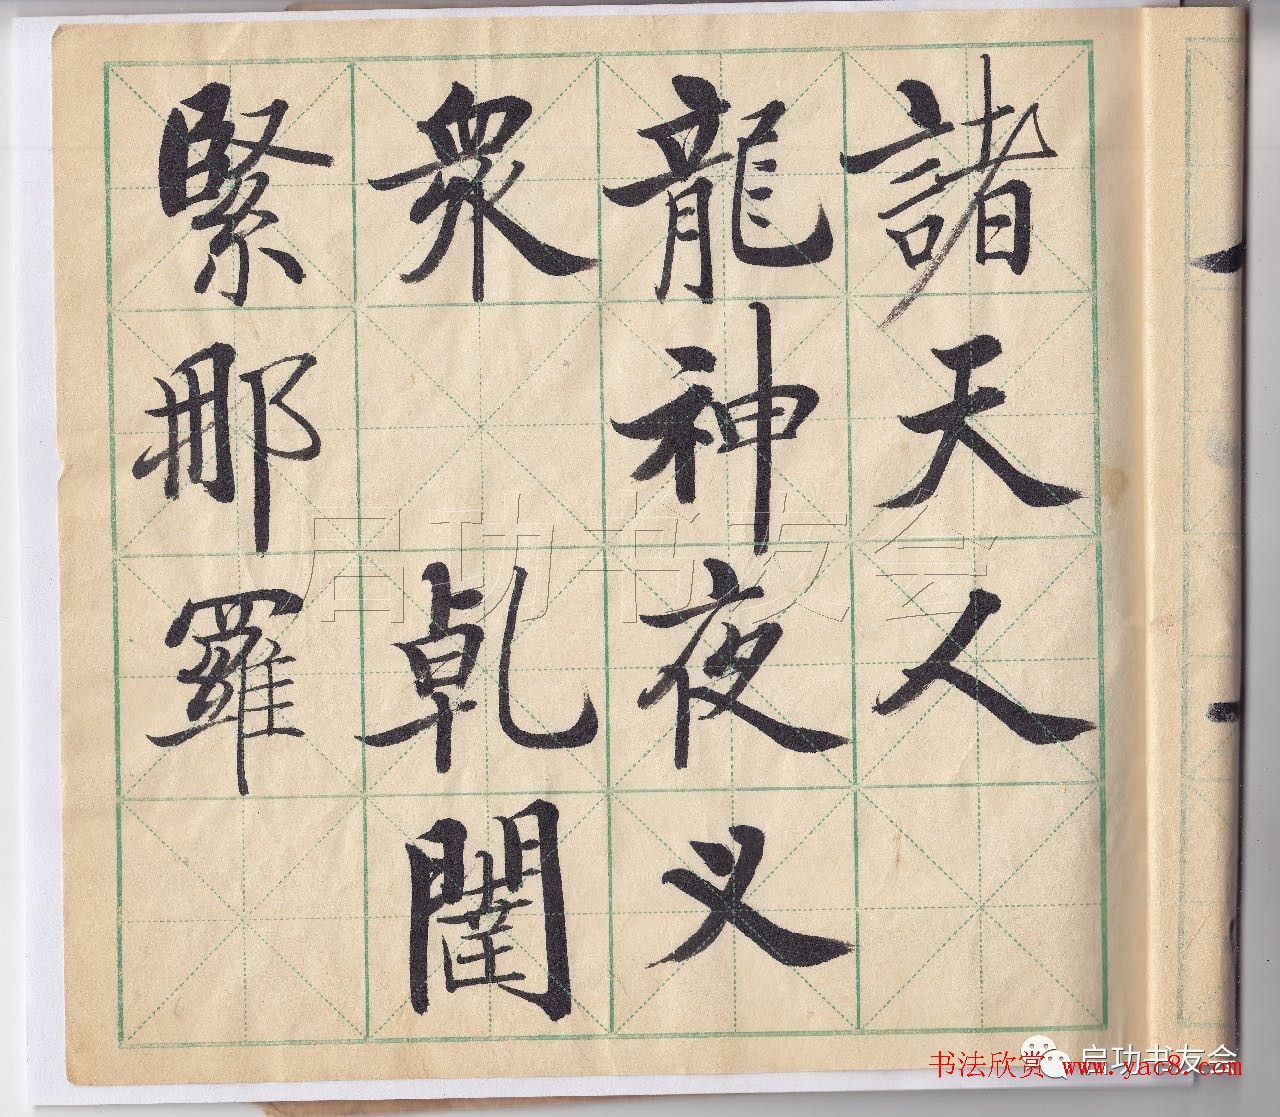 諸天人
龍神夜义
衆 乾闥
緊那羅
启功书友会
启功书友会
书法欣赏 www.yac8.com